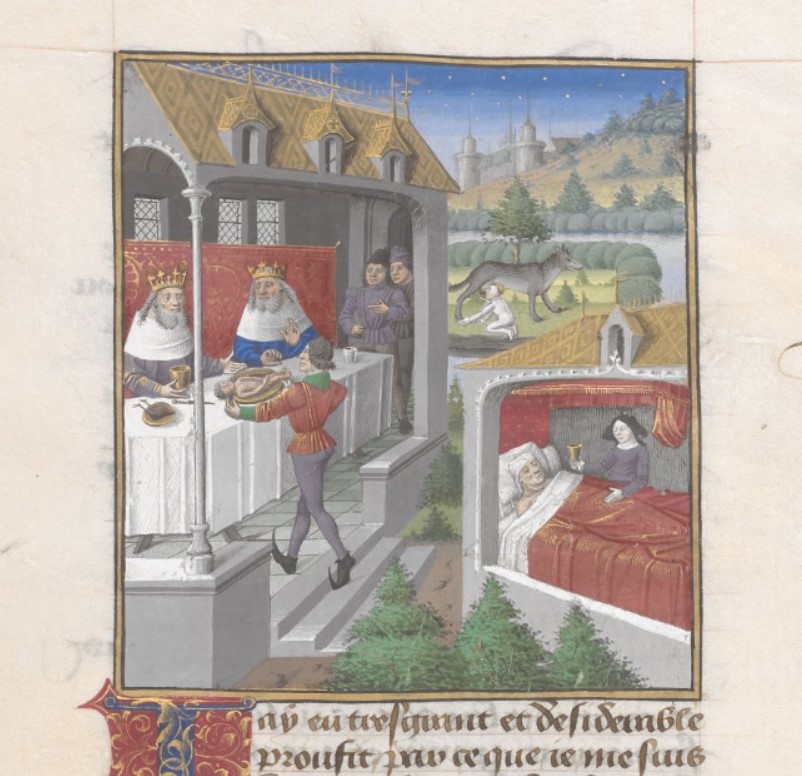 Jay eu tresgrant et desiderable
proufit par ce que ie me suis